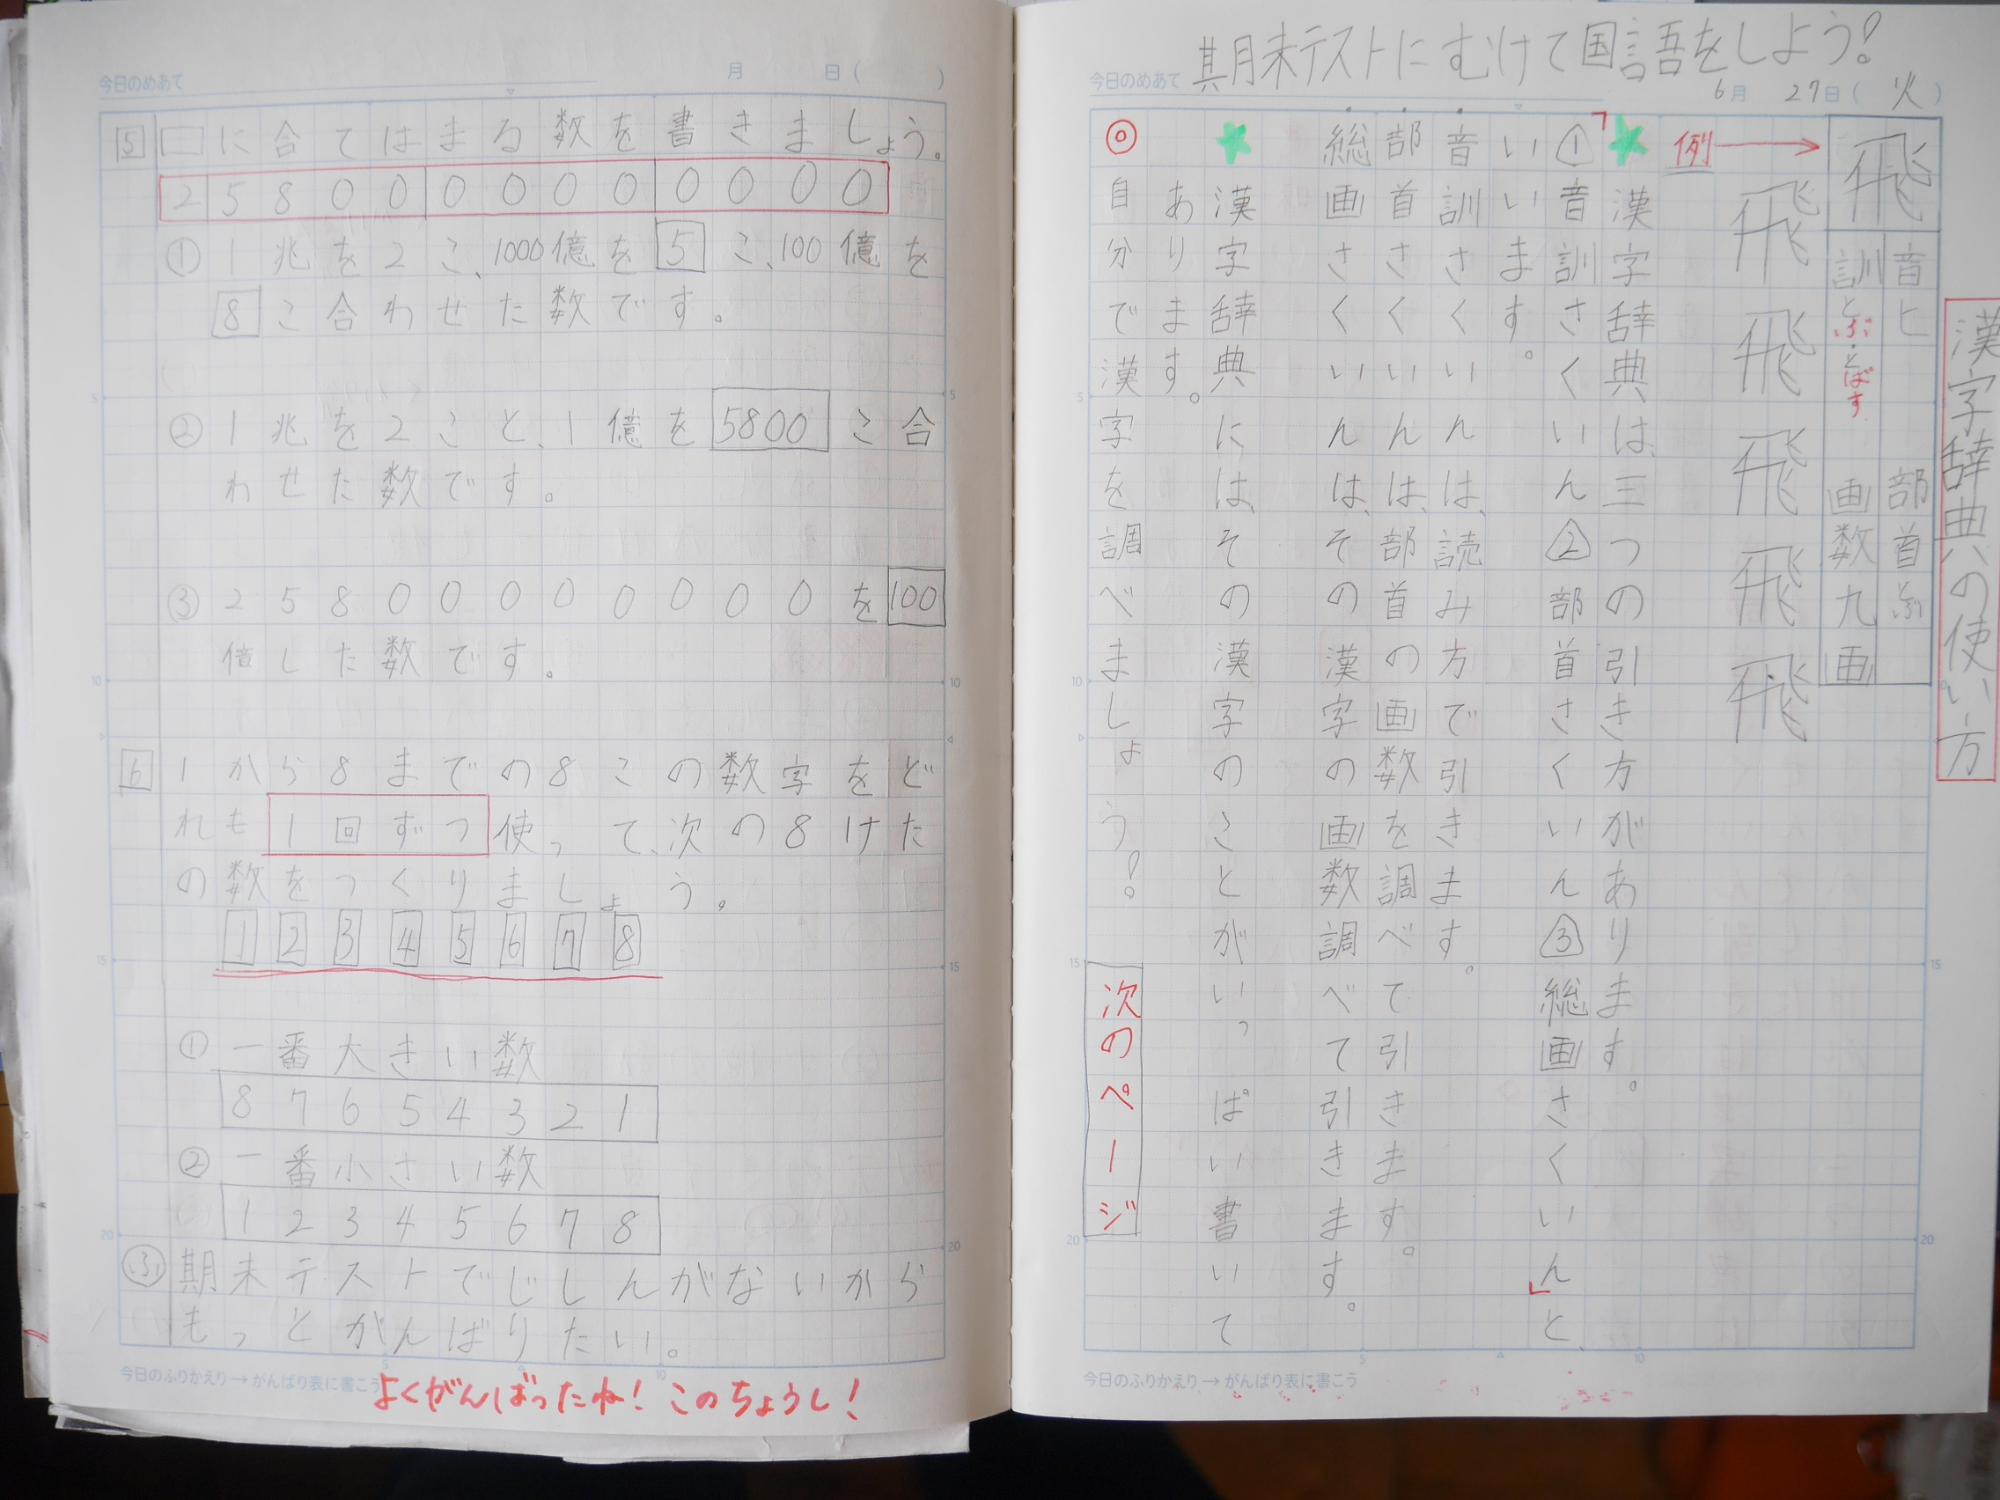 今日のめあて 月 日( )
5 □に合てはまる数を書きましょう。
2580000000000
① 1兆を2こ、1000億を5こ、100億を
8こ合わせた数です。
② 1兆を2こと、1億を5800こ合
わせた数です。
③ 25800000000を100
倍した数です。
6 1から8までの8この数字をど
れも1回ずつ使って、次の8けた
の数をつくりましょう。
1 2 3 4 5 6 7 8
① 一番大きい数
8 7 6 5 4 3 2 1
② 一番小さい数
1 2 3 4 5 6 7 8
ふ 期末テストでじしんがないから
もっとがんばりたい。
今日のふりかえり→がんばり表に書こう
よくがんばったね!このちょうし!
今日のめあて 期末テストにむけて国語をしよう!
6月27日(火)
漢字辞典の使い方
飛 音ヒ 部首とぶ
訓とぶ・とばす 画数九画
例→ 飛飛飛飛飛
★漢字辞典は、三つの引き方があります。
「①音訓さくいん②部首さくいん③総画さくいん」と、
いいます。
音訓さくいんは、読み方で引きます。
部首さくいんは、部首の画数を調べて引きます。
総画さくいんは、その漢字の画数調べて引きます。
★漢字辞典には、その漢字のことがいっぱい書いて
あります。
◎自分で漢字を調べましょう!
次のページ
今日のふりかえり→がんばり表に書こう
5
10
15
20
5
10
15
20
5
10
5
10
15
20
10
15
20
5
10